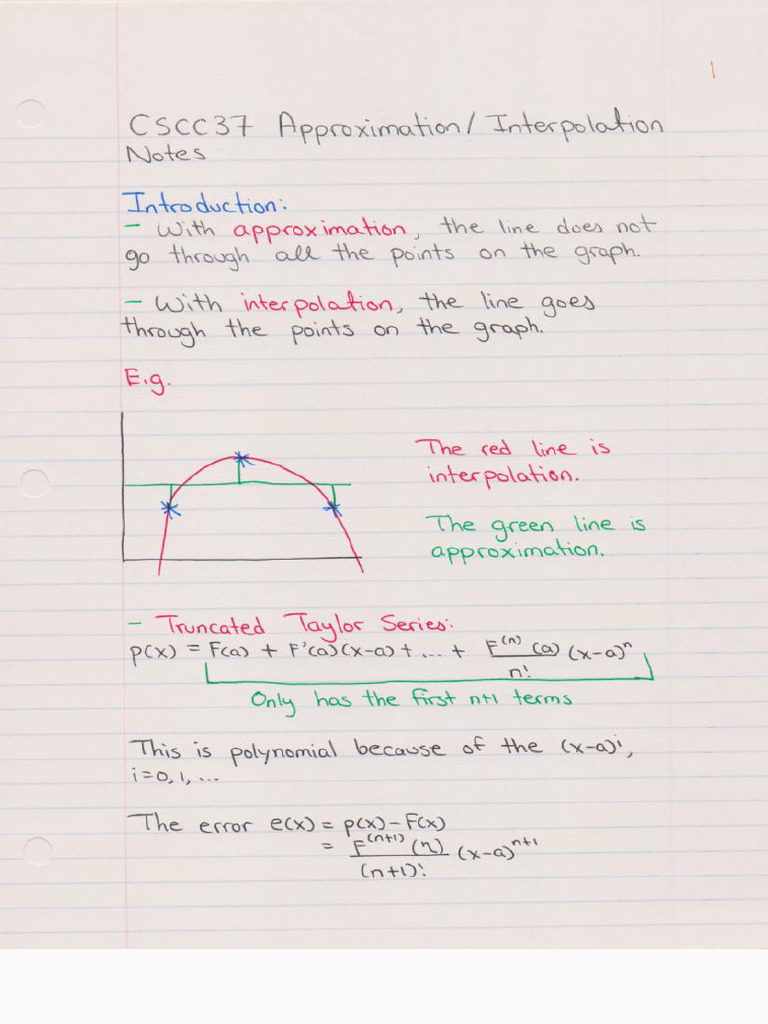 1
CSCC37 Approximation/Interpolation
Notes
Introduction:
- With approximation, the line does not
go through all the points on the graph.
- With interpolation, the line goes
through the points on the graph.
E.g.
The red line is
interpolation.
The green line is
approximation.
- Truncated Taylor Series:
p(x) = F(a) + F'(a)(x-a) + ... + F^(n)(a)/n! (x-a)^n
Only has the first n+1 terms
This is polynomial because of the (x-a)^i,
i=0, 1, ...
The error e(x) = p(x) - F(x)
= F^(n+1)(η)/(n+1)! (x-a)^n+1